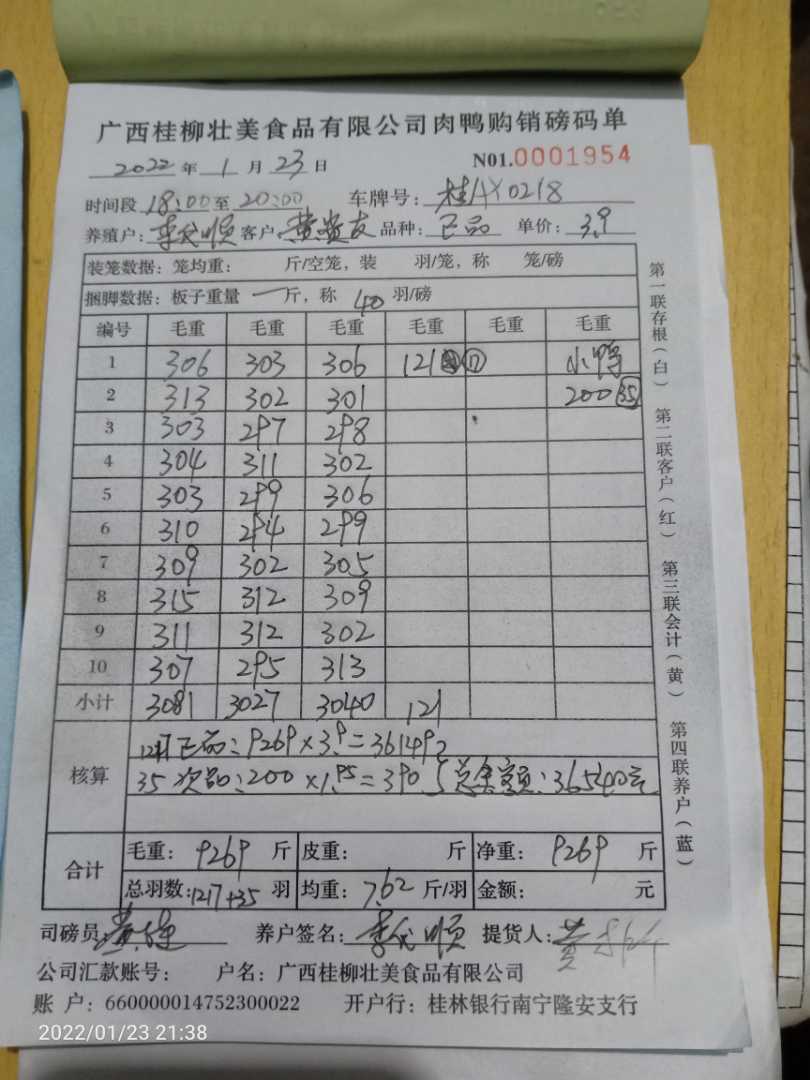 广西桂柳壮美食品有限公司肉鸭购销磅码单
2022 年 1 月 23 日 N01.0001954
时间段 18:00 至 20:00 车牌号: 桂AY0218
养殖户: 李代顺 客户: 黄贵友 品种: 正品 单价: 3.9
装笼数据: 笼均重: 斤/空笼, 装 羽/笼, 称 笼/磅
捆脚数据: 板子重量 一 斤, 称 40 羽/磅
编号 毛重 毛重 毛重 毛重 毛重 毛重
1 306 303 306 121 ⑰ 小鸭
2 313 302 301 200 35
3 303 297 298
4 304 311 302
5 303 299 306
6 310 294 299
7 309 302 305
8 315 312 309
9 311 312 302
10 307 295 313
小计 3081 3027 3040 121
核算
1217 正品: 9269×3.9=36149.2
35 次品: 200×1.95=390 总金额: 36540元
合计
毛重: 9269 斤 皮重: 斤 净重: 9269 斤
总羽数: 1217+35 羽 均重: 7.62 斤/羽 金额: 元
司磅员: 养户签名: 李代顺 提货人: 黄
公司汇款账号: 户名: 广西桂柳壮美食品有限公司
账 户: 660000014752300022 开户行: 桂林银行南宁隆安支行
第一联存根(白) 第二联客户(红) 第三联会计(黄) 第四联养户(蓝)
2022/01/23 21:38